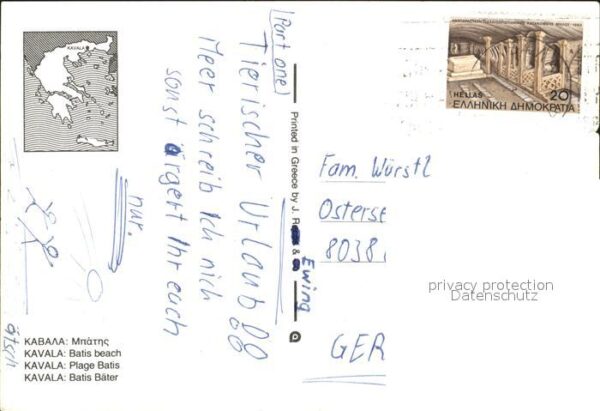 KAVALA
(Part one)
Tierischer Urlaub
Meer schreib Ich nich
sonst ärgert Ihr euch
nur.
Ätsch
ΚΑΒΑΛΑ: Μπάτης
KAVALA: Batis beach
KAVALA: Plage Batis
KAVALA: Batis Bäter
Printed in Greece by J. &
Ewing
HELLAS 20
ΕΛΛΗΝΙΚΗ ΔΗΜΟΚΡΑΤΙΑ
Fam. Würstl
Osterse
8038
GER
privacy protection
Datenschutz